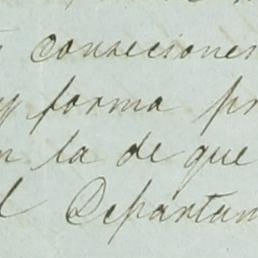 conseciones
forma pr
n la de que
l Departam